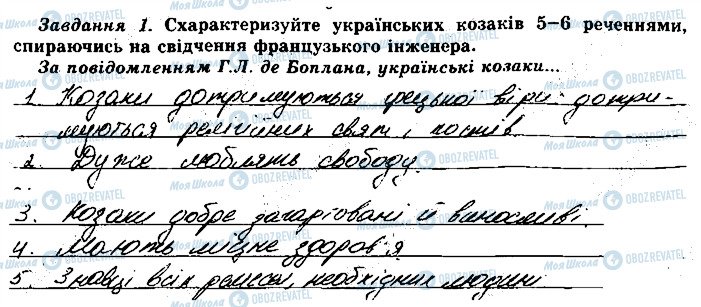 Завдання 1. Схарактеризуйте українських козаків 5–6 реченнями,
спираючись на свідчення французького інженера.
За повідомленням Г.Л. де Боплана, українські козаки...
1. Козаки дотримуються грецької віри дотри-
муються релігійних свят і постів.
2. Дуже люблять свободу.
3. Козаки добре загартовані й виносливі.
4. Мають міцне здоров'я
5. Знавці всіх ремесел, необхідних людині